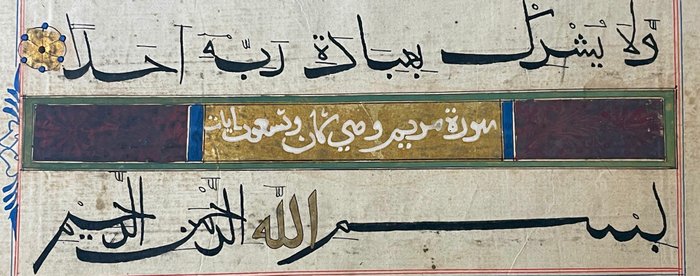 وَلَا يُشْرِكْ بِعِبَادَةِ رَبِّهِ أَحَدًا
سورة مريم وهي ثمان وتسعون آيات
بسم الله الرحمن الرحيم